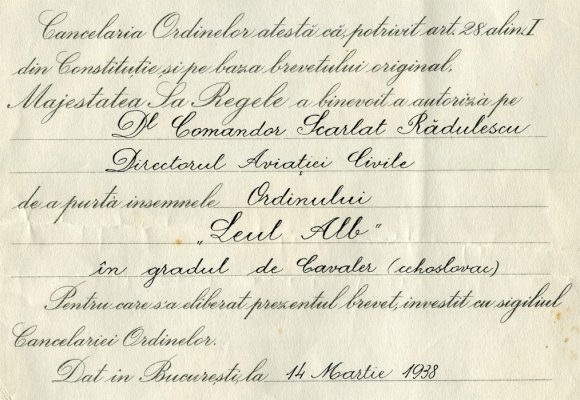 Cancelaria Ordinelor atestă că, potrivit art. 28 alin. I
din Constituție, și pe baza brevetului original,
Majestatea Sa Regele a binevoit a autoriză pe
Dl Comandor Scarlat Rădulescu
Directorul Aviației Civile
de a purtă insemnele Ordinului
„Leul Alb"
în gradul de Cavaler (cehoslovac)
Pentru care s'a eliberat prezentul brevet, investit cu sigiliul
Cancelariei Ordinelor.
Dat in București, la 14 Martie 1938